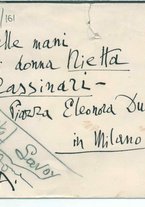 161
elle mani
donna Rietta
Cassinari-
Piazza Eleonora Du
in Milano
Savoy